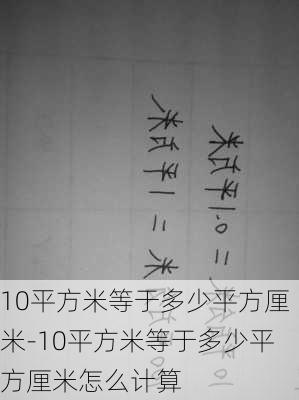 米方平1=米
米方平1.0=
10平方米等于多少平方厘
米-10平方米等于多少平
方厘米怎么计算